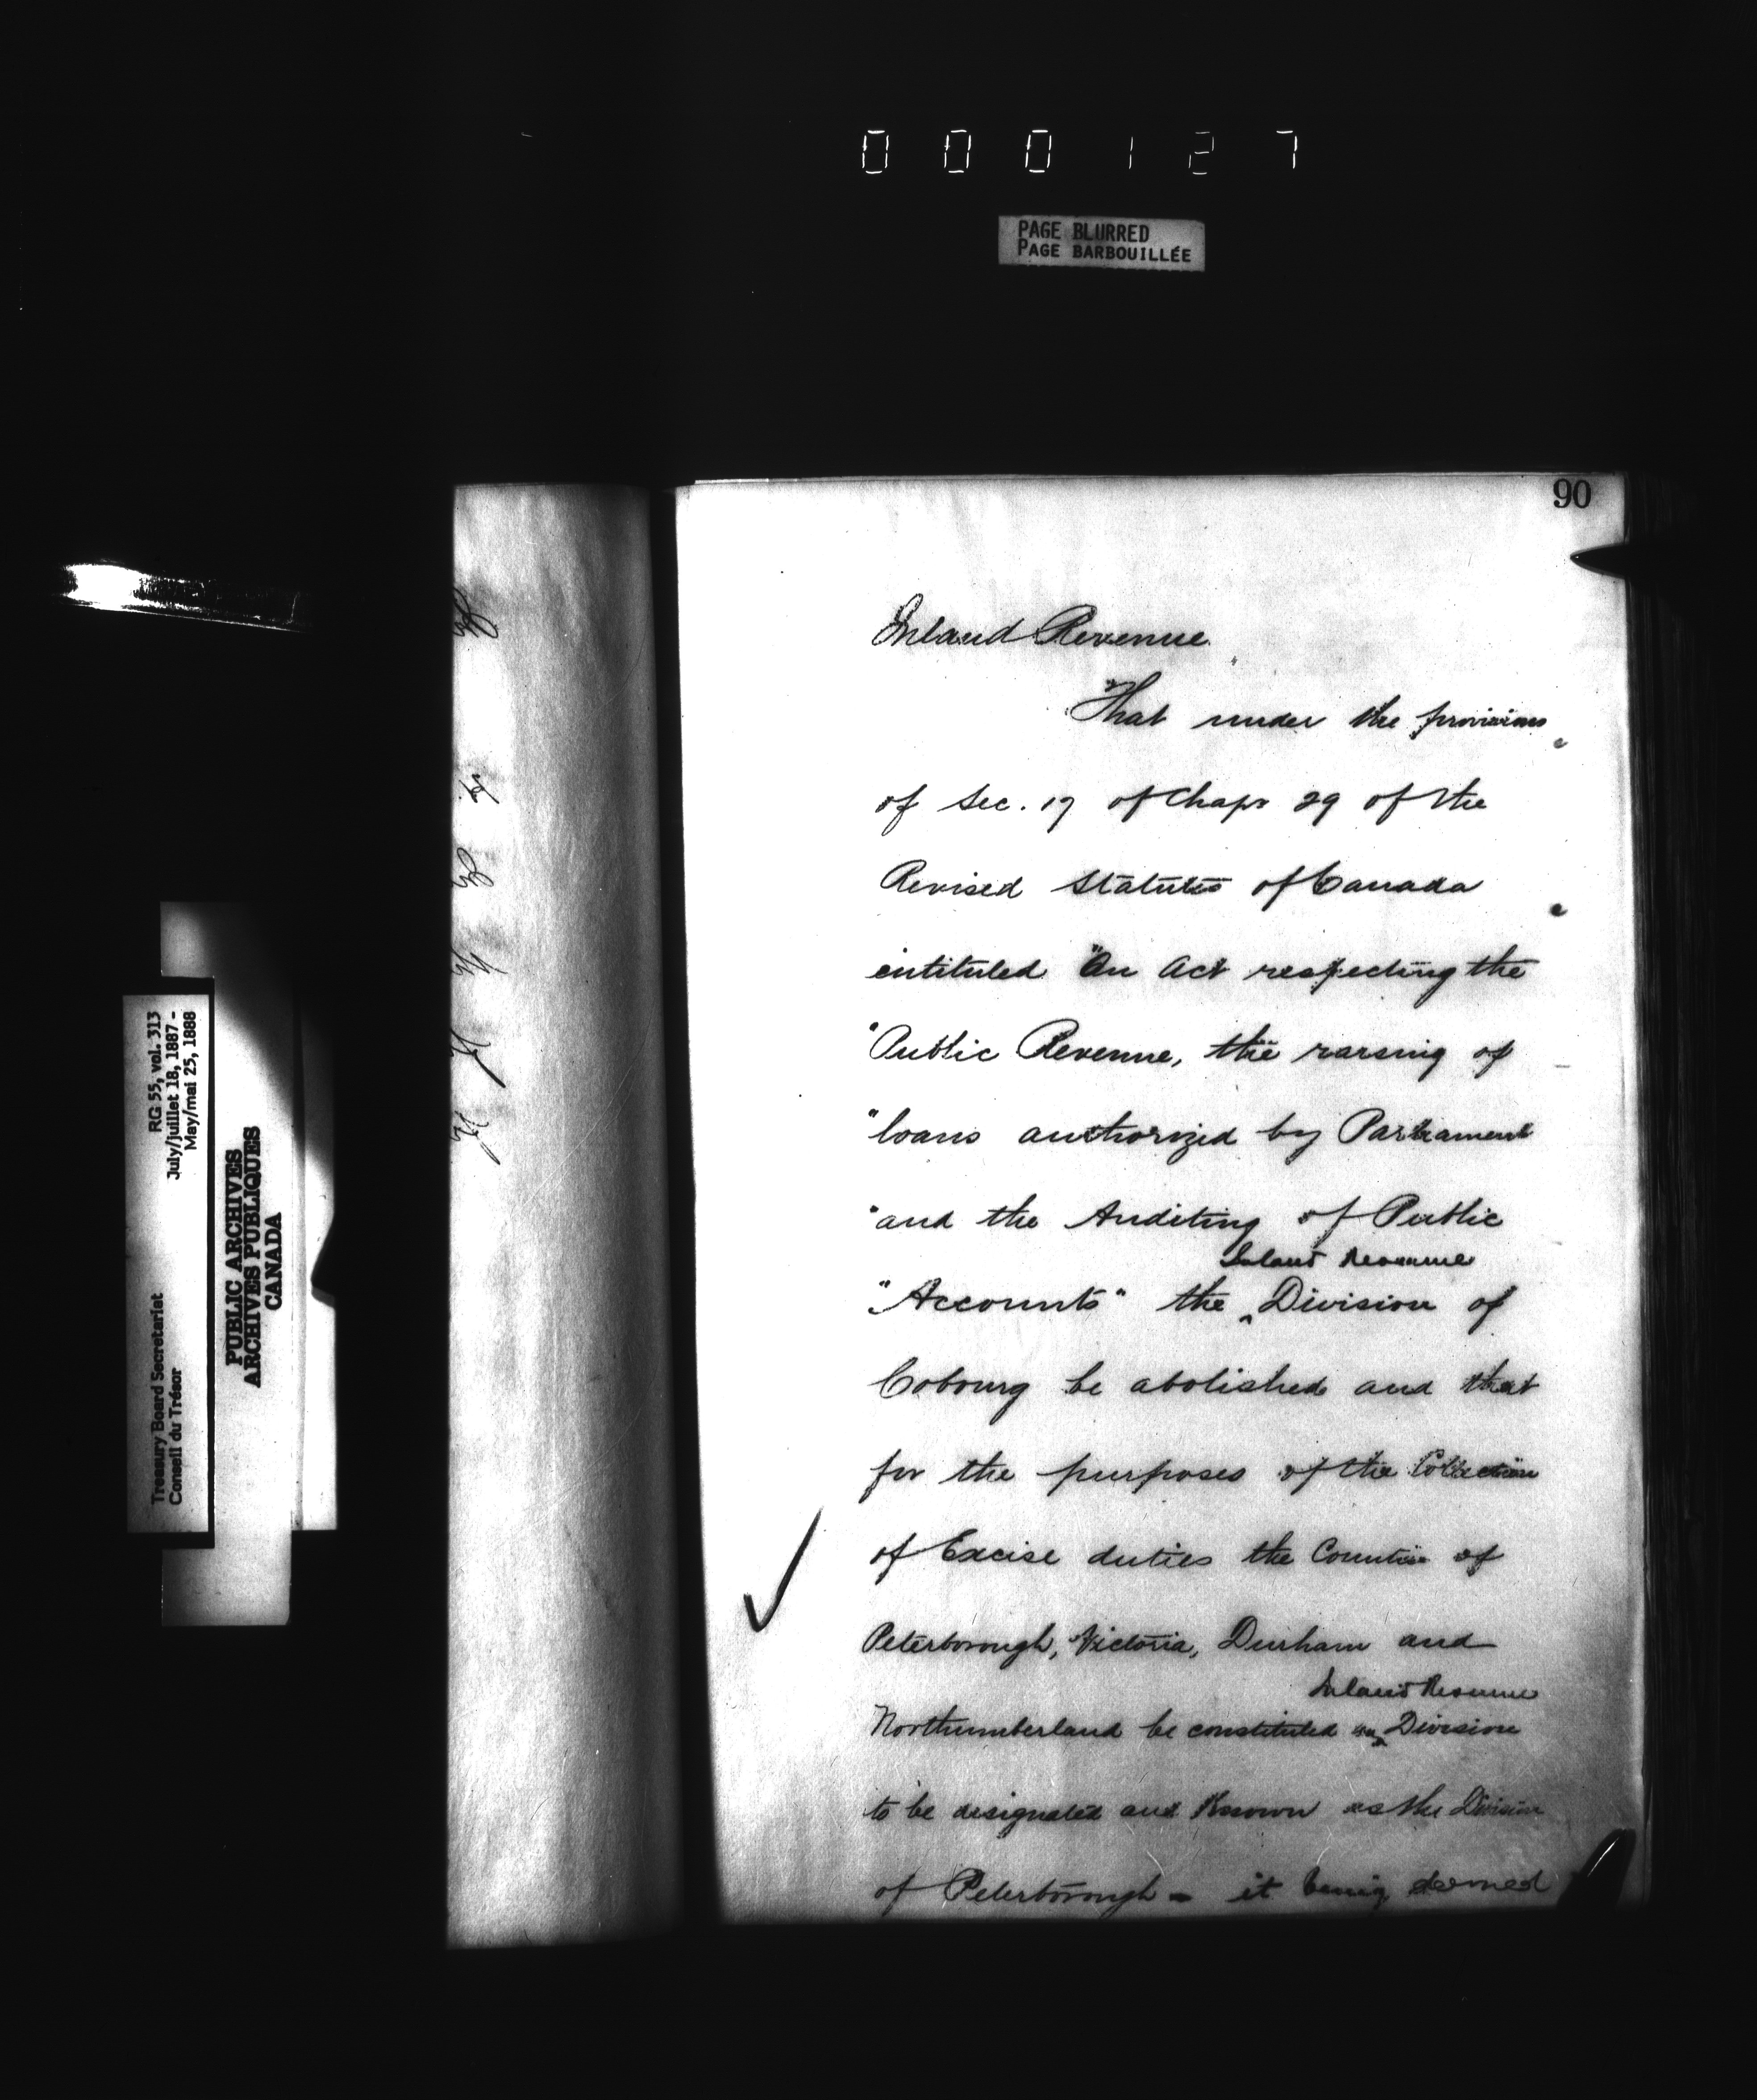 000127
PAGE BLURRED
PAGE BARBOUILLÉE
90
Inland Revenue.
"That under the provisions
of Sec. 17 of Chapr 29 of the
Revised Statutes of Canada
entituled "An Act respecting the
"Public Revenue, the raising of
"loans authorized by Parliament
"and the Auditing of Public
Inland Revenue
"Accounts" the ^ Division of
Cobourg be abolished and that
for the purposes of the Collection
of Excise duties the Counties of
Peterborough, Victoria, Durham and
Inland Revenue
Northumberland be constituted an ^ Division
to be designated and known as the Division
of Peterborough - it being deemed
RG 55, vol. 313
July/juillet 18, 1887 -
May/mai 25, 1888
Treasury Board Secretariat
Conseil du Trésor
PUBLIC ARCHIVES
ARCHIVES PUBLIQUES
CANADA